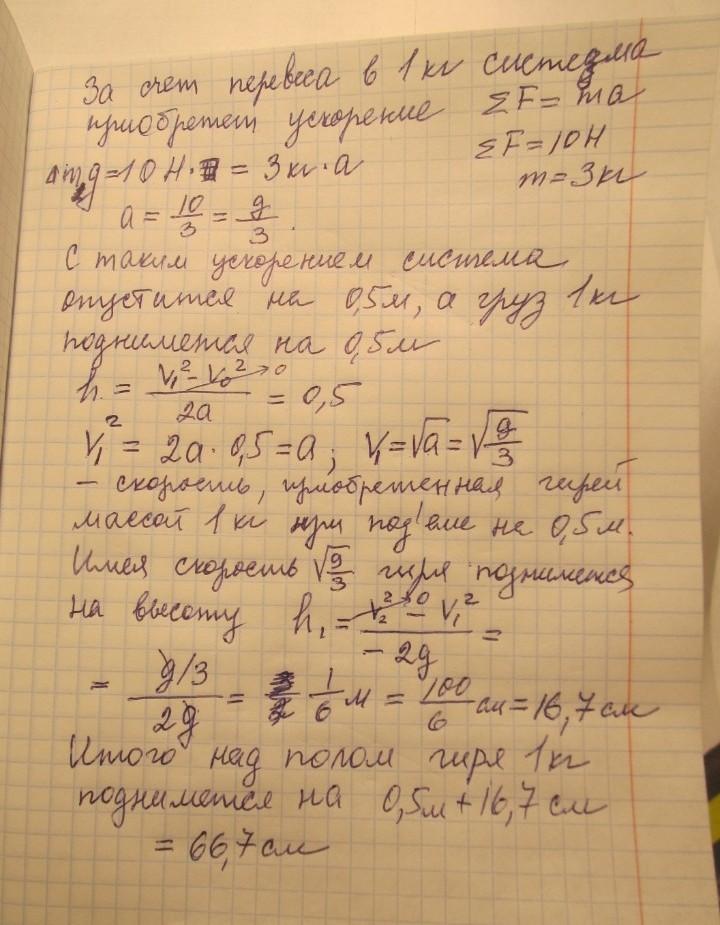 За счет перевеса в 1 кг система
приобретет ускорение ΣF = ma
ΣF = 10 Н
Δmg = 10 Н · = 3 кг · a
m = 3 кг
a = 10/3 = g/3.
С таким ускорением система
опустится на 0,5 м, а груз 1 кг
поднимется на 0,5 м
h = (V₁² – V₀²→0)/2a = 0,5
V₁² = 2a · 0,5 = a; V₁ = √a = √(g/3)
– скорость, приобретенная гирей
массой 1 кг при под'еме на 0,5 м.
Имея скорость √(g/3) гиря поднимется
на высоту h₁ = (V₂²→0 – V₁²)/(–2g) =
= (g/3)/(2g) = 1/6 м = 100/6 см = 16,7 см
Итого над полом гиря 1 кг
поднимется на 0,5 м + 16,7 см
= 66,7 см